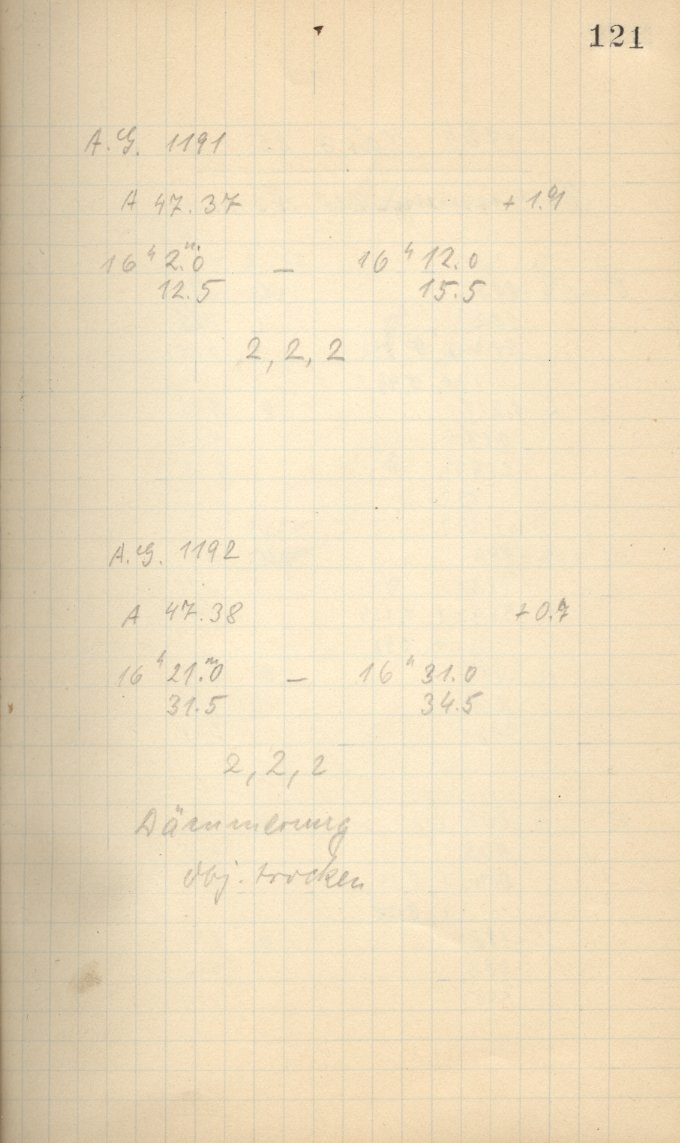 121
A.G. 1191
A 47.37 + 1.9
16ʰ 2.ᵐ0 — 16ʰ 12.0
12.5 15.5
2, 2, 2
A.G. 1192
A 47.38 + 0.7
16ʰ 21.ᵐ0 — 16ʰ 31.0
31.5 34.5
2, 2, 2
Dämmerung
Obj. trocken